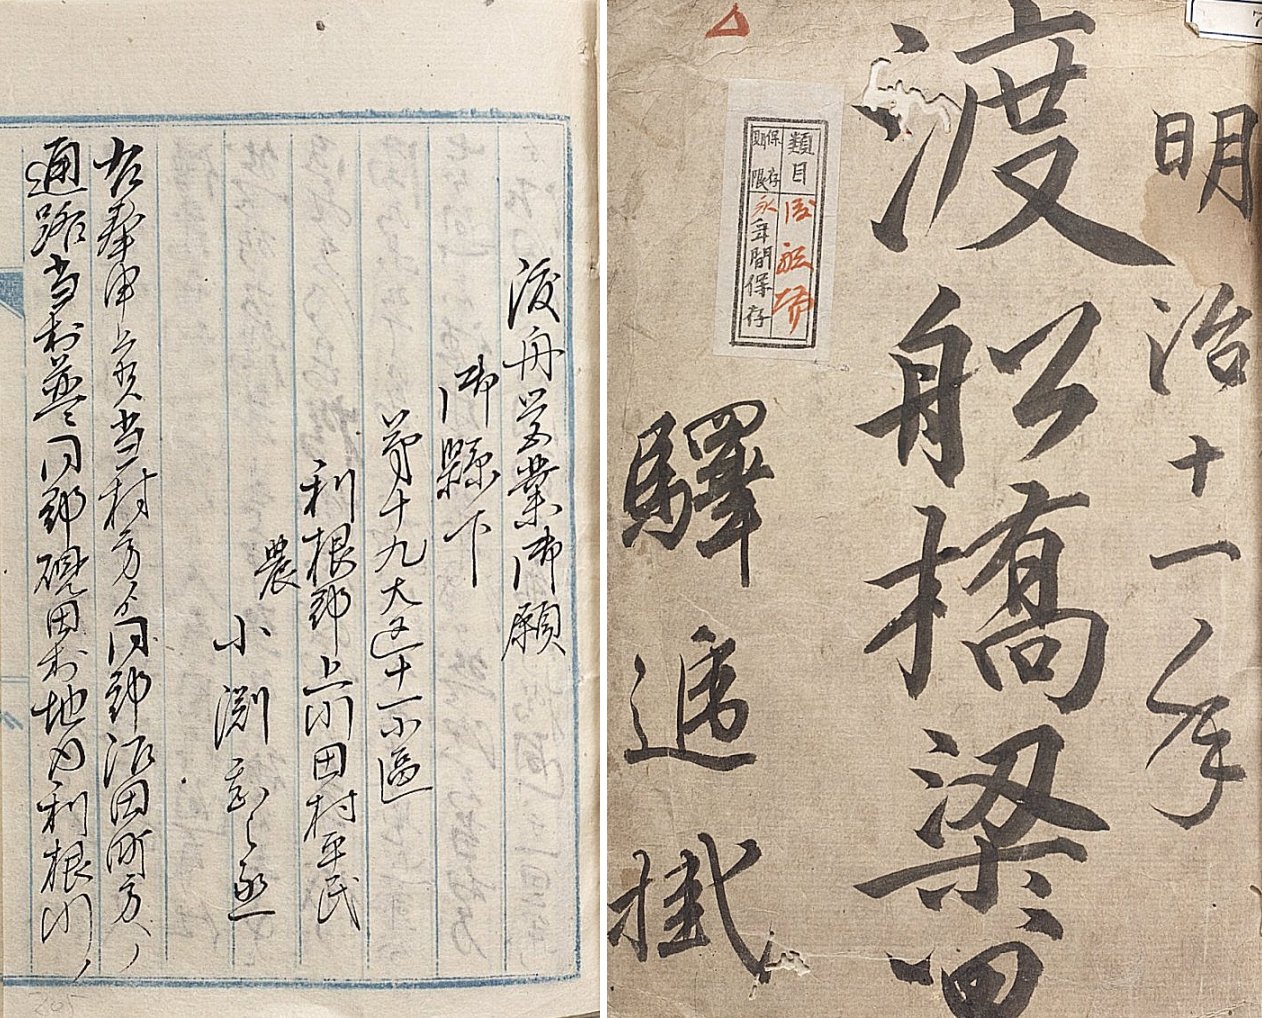 渡舟営業御願
御縣下
第十九大区十一小区
利根郡上川田村平民
農
小渕
右奉申上候当村方ゟ同郡沼田町方ノ
通路当村并同郡硯田村地内利根川ノ
明治十一年
渡船橋梁
四
驛逓掛
類目
保存期限
永年間保存
7
205